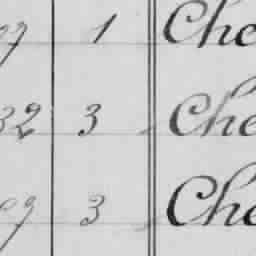 1 Che
32 3 Che
3 Che